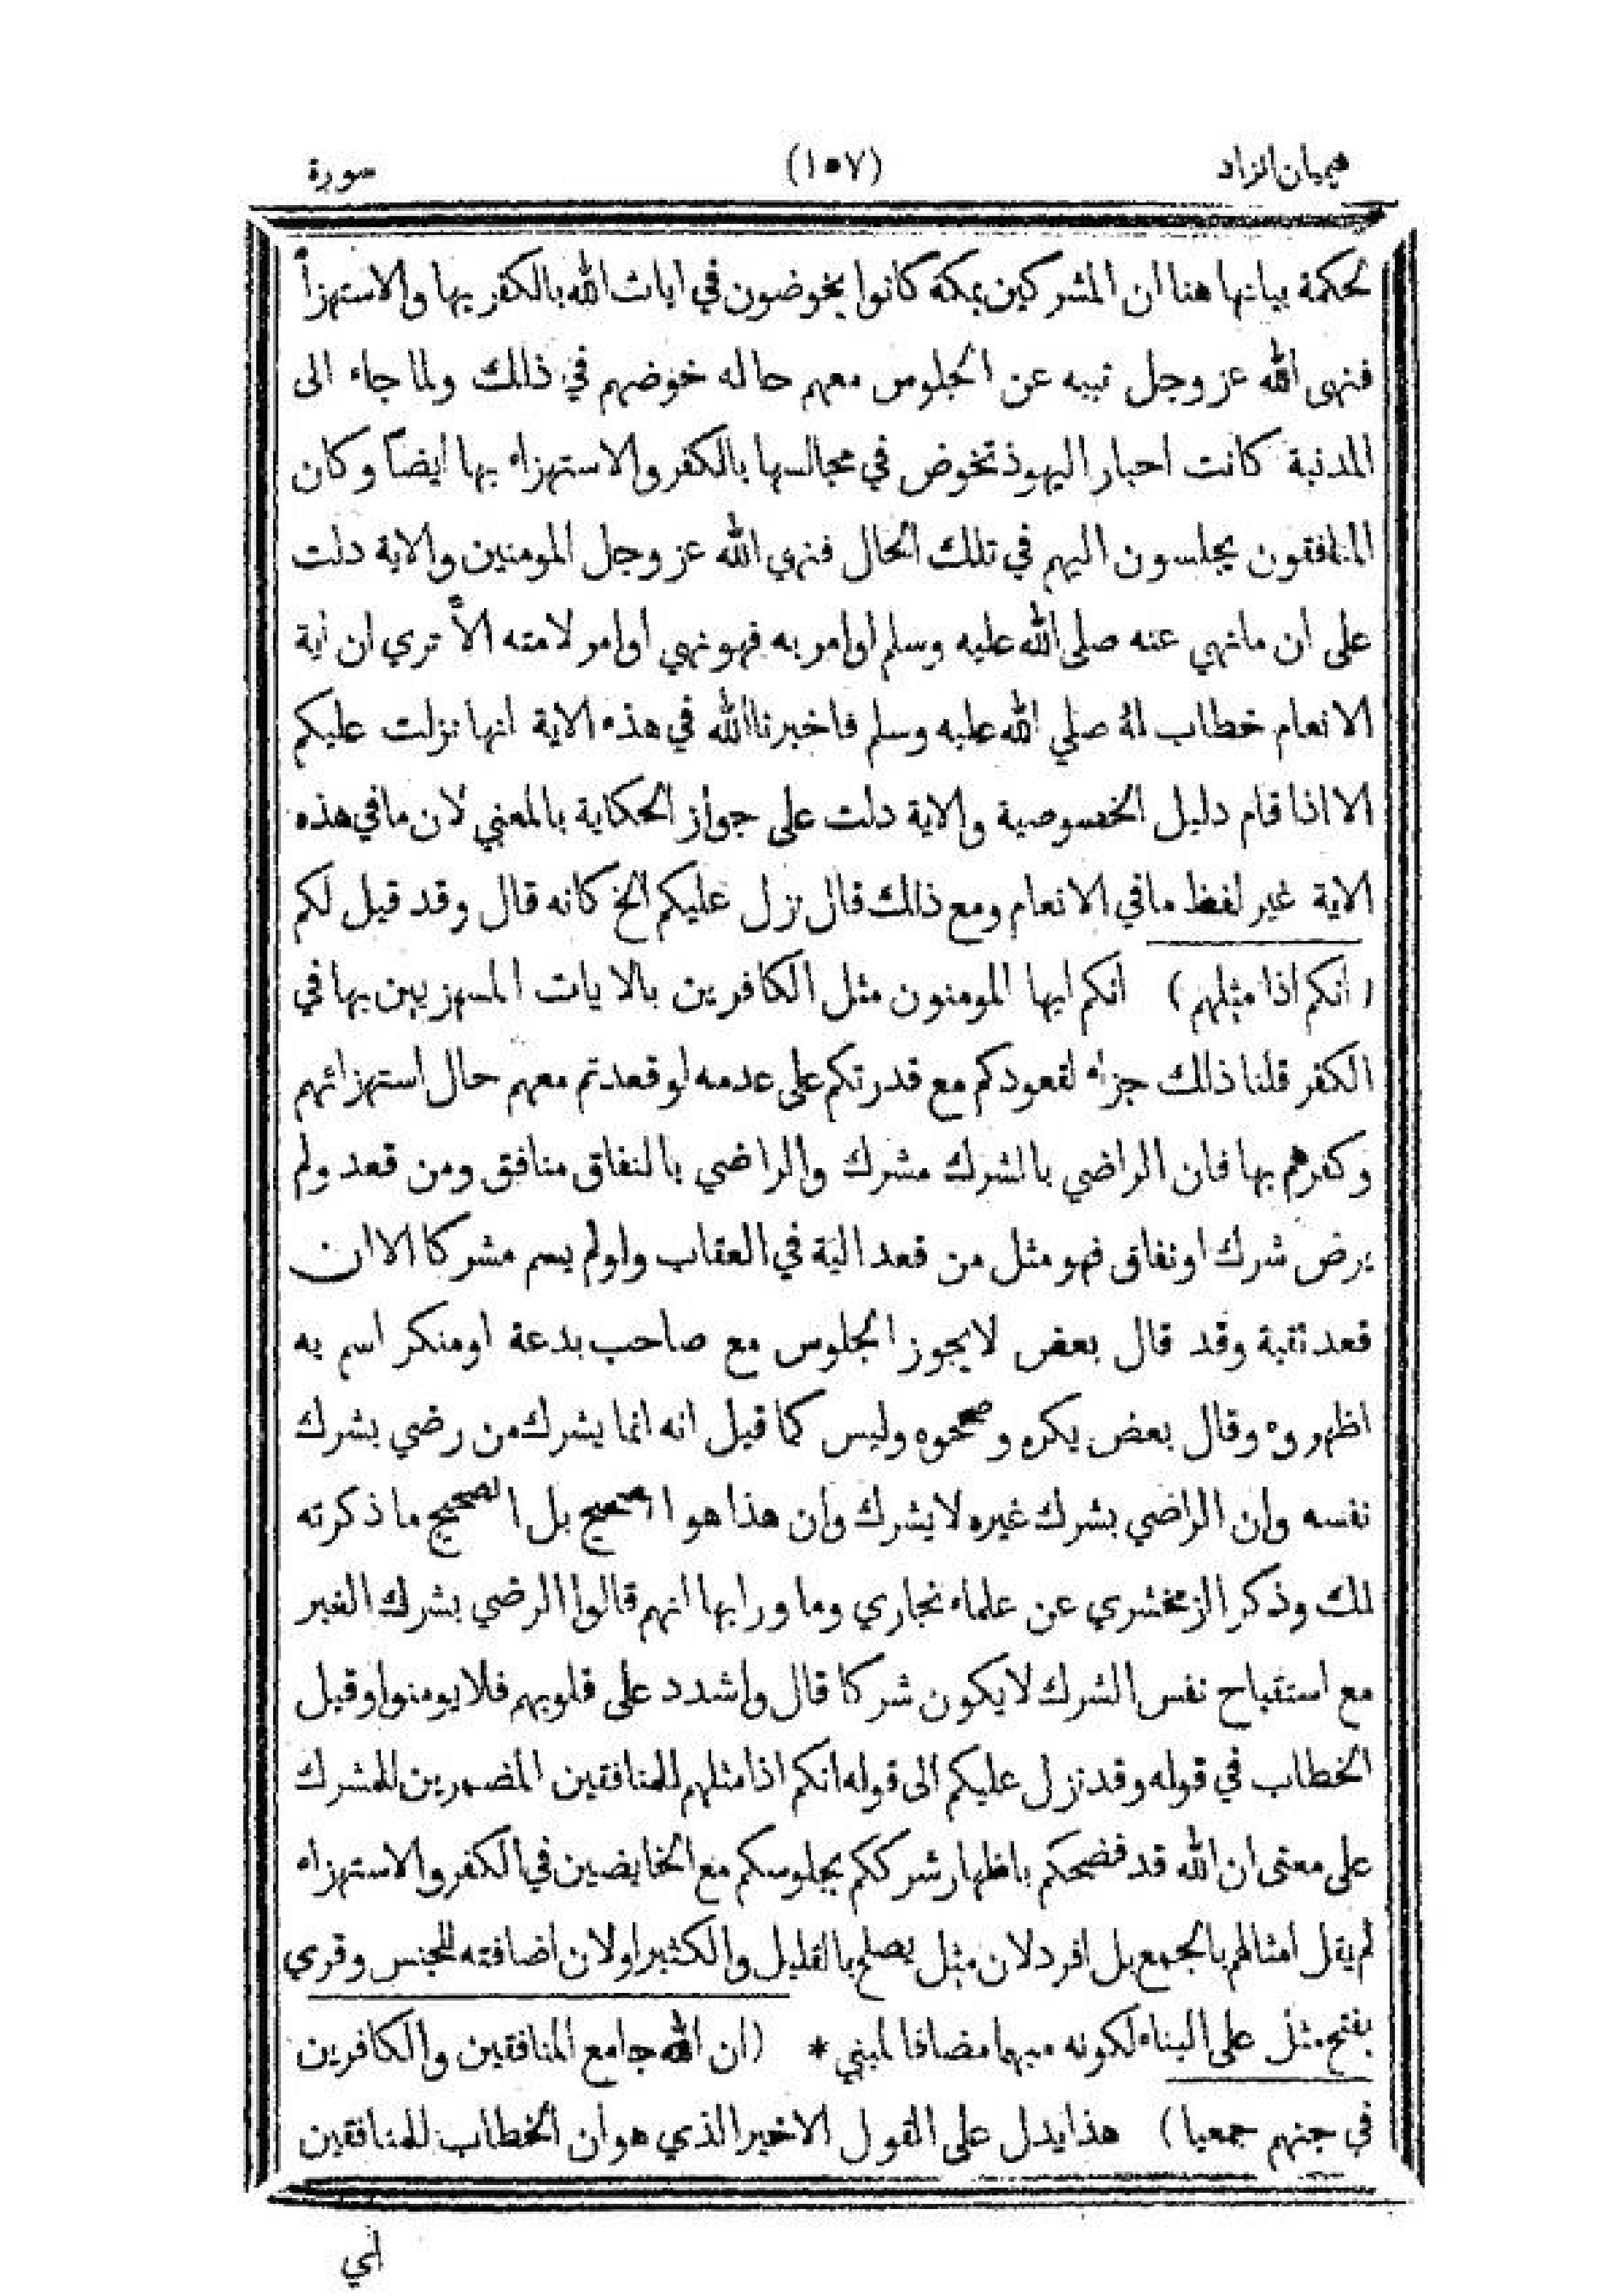 هيميان الزاد
(١٥٧)
سورة
لحكمة بيانها هنا ان المشركين بمكة كانوا يخوضون في ايات الله بالكفر بها والاستهزأ
فنهى الله عز وجل نبيه عن الجلوس معهم حاله خوضهم في ذلك ولما جاء الى
المدنية كانت احبار اليهود تخوض في مجالسها بالكفر والاستهزاء بها ايضا وكان
المنافقون يجلسون اليهم في تلك الحال فنهي الله عز وجل المومنين والاية دلت
على ان مانهي عنه صلى الله عليه وسلم اوامر به فهو نهي اوامر لامته الا تري ان اية
الانعام خطاب له صلي الله عليه وسلم فاخبرنا الله في هذه الاية انها نزلت عليكم
الا اذا قام دليل الخصوصية والاية دلت على جواز الحكاية بالمعني لان مافي هذه
الاية غير لفظ مافي الانعام ومع ذلك قال نزل عليكم الخ كانه قال وقد قيل لكم
(انكم اذا مثلهم) انكم ايها المومنون مثل الكافرين بالايات المستهزيين بها في
الكفر قلنا ذلك جزاء لقعودكم مع قدرتكم على عدمه لو قعدتم معهم حال استهزائهم
وكفرهم بها فان الراضي بالشرك مشرك والراضي بالنفاق منافق ومن قعد ولم
يرض شرك او نفاق فهو مثل من قعد اليه في العقاب ولو لم يسم مشركا الا ان
قعد تقية وقد قال بعض لايجوز الجلوس مع صاحب بدعة او منكر اسم به
اظهروه وقال بعض يكره وصححوه وليس كما قيل انه انما يشرك من رضي بشرك
نفسه وان الراضي بشرك غيره لا يشرك وان هذا هو الصحيح بل الصحيح ما ذكرته
لك وذكر الزمخشري عن علماء نجاري وما ورايها انهم قالوا الرضي بشرك الغير
مع استقباح نفس الشرك لا يكون شركا قال واشدد على قلوبهم فلا يومنوا وقيل
الخطاب في قوله وقد نزل عليكم الى قوله انكم اذا مثلهم للمنافقين المضمرين للمشرك
على معنى ان الله قد فضحكم باظهار شرككم بجلوسكم مع الخايضين في الكفر والاستهزاء
لم يقل امثالهم بالجمع بل افرد لان مثل يصلح بالقليل والكثير اولان اضافته للجنس وقري
بفتح مثل على البناء لكونه مبهما مضافا لمبني * (ان الله جامع المنافقين والكافرين
في جهنم جمعيا) هذا يدل على القول الاخير الذي هو ان الخطاب للمنافقين
اي